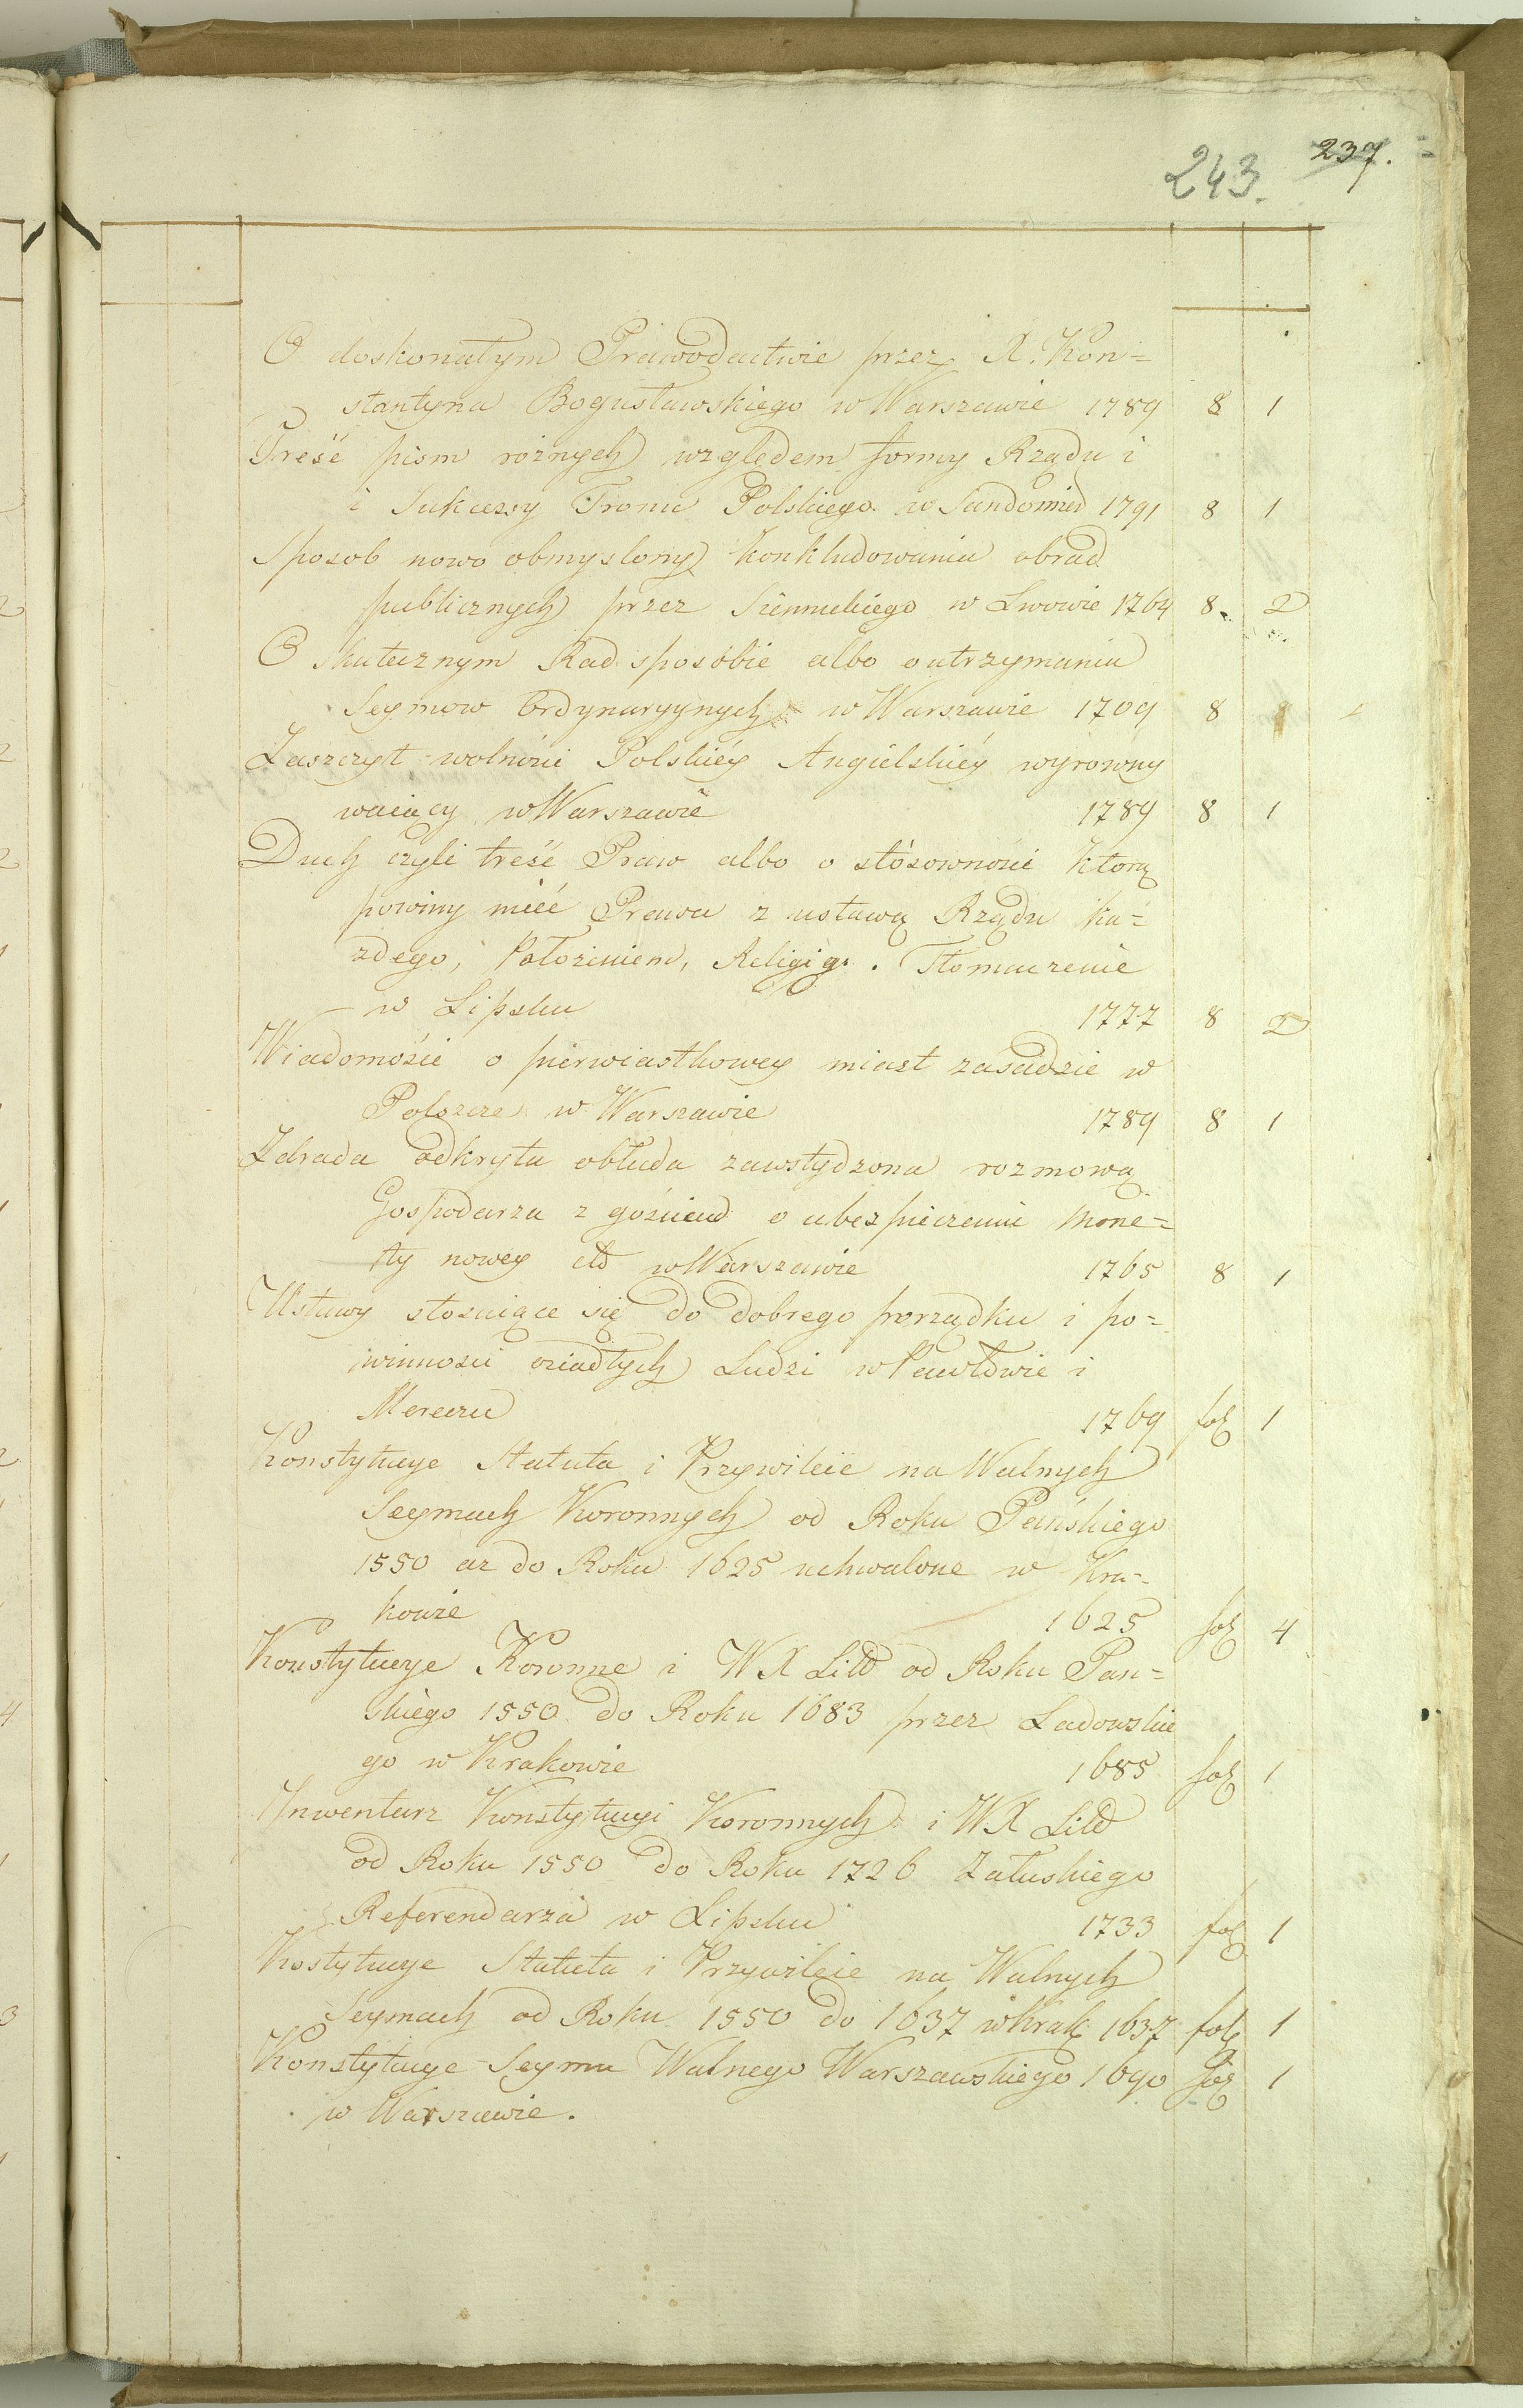 243. 237.
O doskonałym Prawodactwie przez X. Kon=
stantyna Bogusławskiego w Warszawie 1789 8 1
Treść pism rożnych względem formy Rządu i
i Sukcessy Tronu Polskiego w Sandomier 1791 8 1
Sposob nowo obmyslony konkludowania obrad
publicznych przez Siennickiego w Lwowie 1764 8. 2
O skutecznym Rad sposobie albo o utrzymaniu
Seymow Ordynaryynych w Warszawie 1709 8
Zaszczyt wolności Polskiéy Angielskiéy wyrowny
waiący w Warszawie 1789 8 1
Duch czyli treść Praw albo o stósownośći ktorą
powiny mieć Prawa z ustawą Rządu ka=
zdego, Położeniem, Religią. Tłomaczenie
w Lipsku 1777 8 2
Wiadomośćie o pierwiastkowey miast zasadzie w
Polszcze w Warszawie 1789 8 1
Zdrada odkryta obłuda zawstydzona rozmową
Gospodarza z gościem o ubezpieczeniu mone=
ty nowey etc w Warszawie 1765 8 1
Ustawy stosuiące się do dobrego porządku i po=
winnosci osiadłych Ludzi w Pawłowie i
Mereczu 1769 fol 1
Konstytucye Statuta i Przywileie na Walnych
Seymach Koronnych od Roku Pańskiego
1550 az do Roku 1625 uchwalone w Kra=
kowie 1625 fol 4
Konstytucye Koronne i W X Litt od Roku Pan=
skiego 1550 do Roku 1683 przez Ladowskie
go w Krakowie 1685 fol 1
Inwentarz Konstytucyi Koronnych i W X Litt
od Roku 1550 do Roku 1726 Załuskiego
Referendarza w Lipsku 1733 fol 1
Kostytucye Statuta i Przywileie na Walnych
Seymach od Roku 1550 do 1637 w Krak 1637 fol 1
Konstytucye Seymu Walnego Warszawskiego 1690 fol 1
w Warszawie.